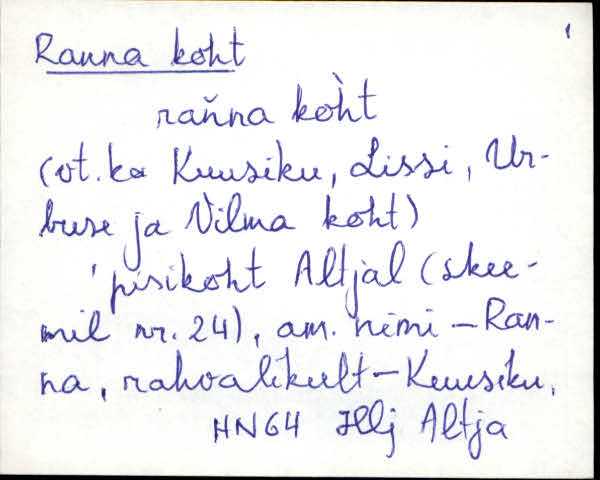 1
Ranna koht
rañna kòht
(vt. ka Kuusiku, Lissi, Ur-
buse ja Vilma koht)
'pisikoht Altjal (skee-
mil nr. 24), am. nimi – Ran-
na, rahvalikult – Kuusiku.
HN64 Hlj Altja